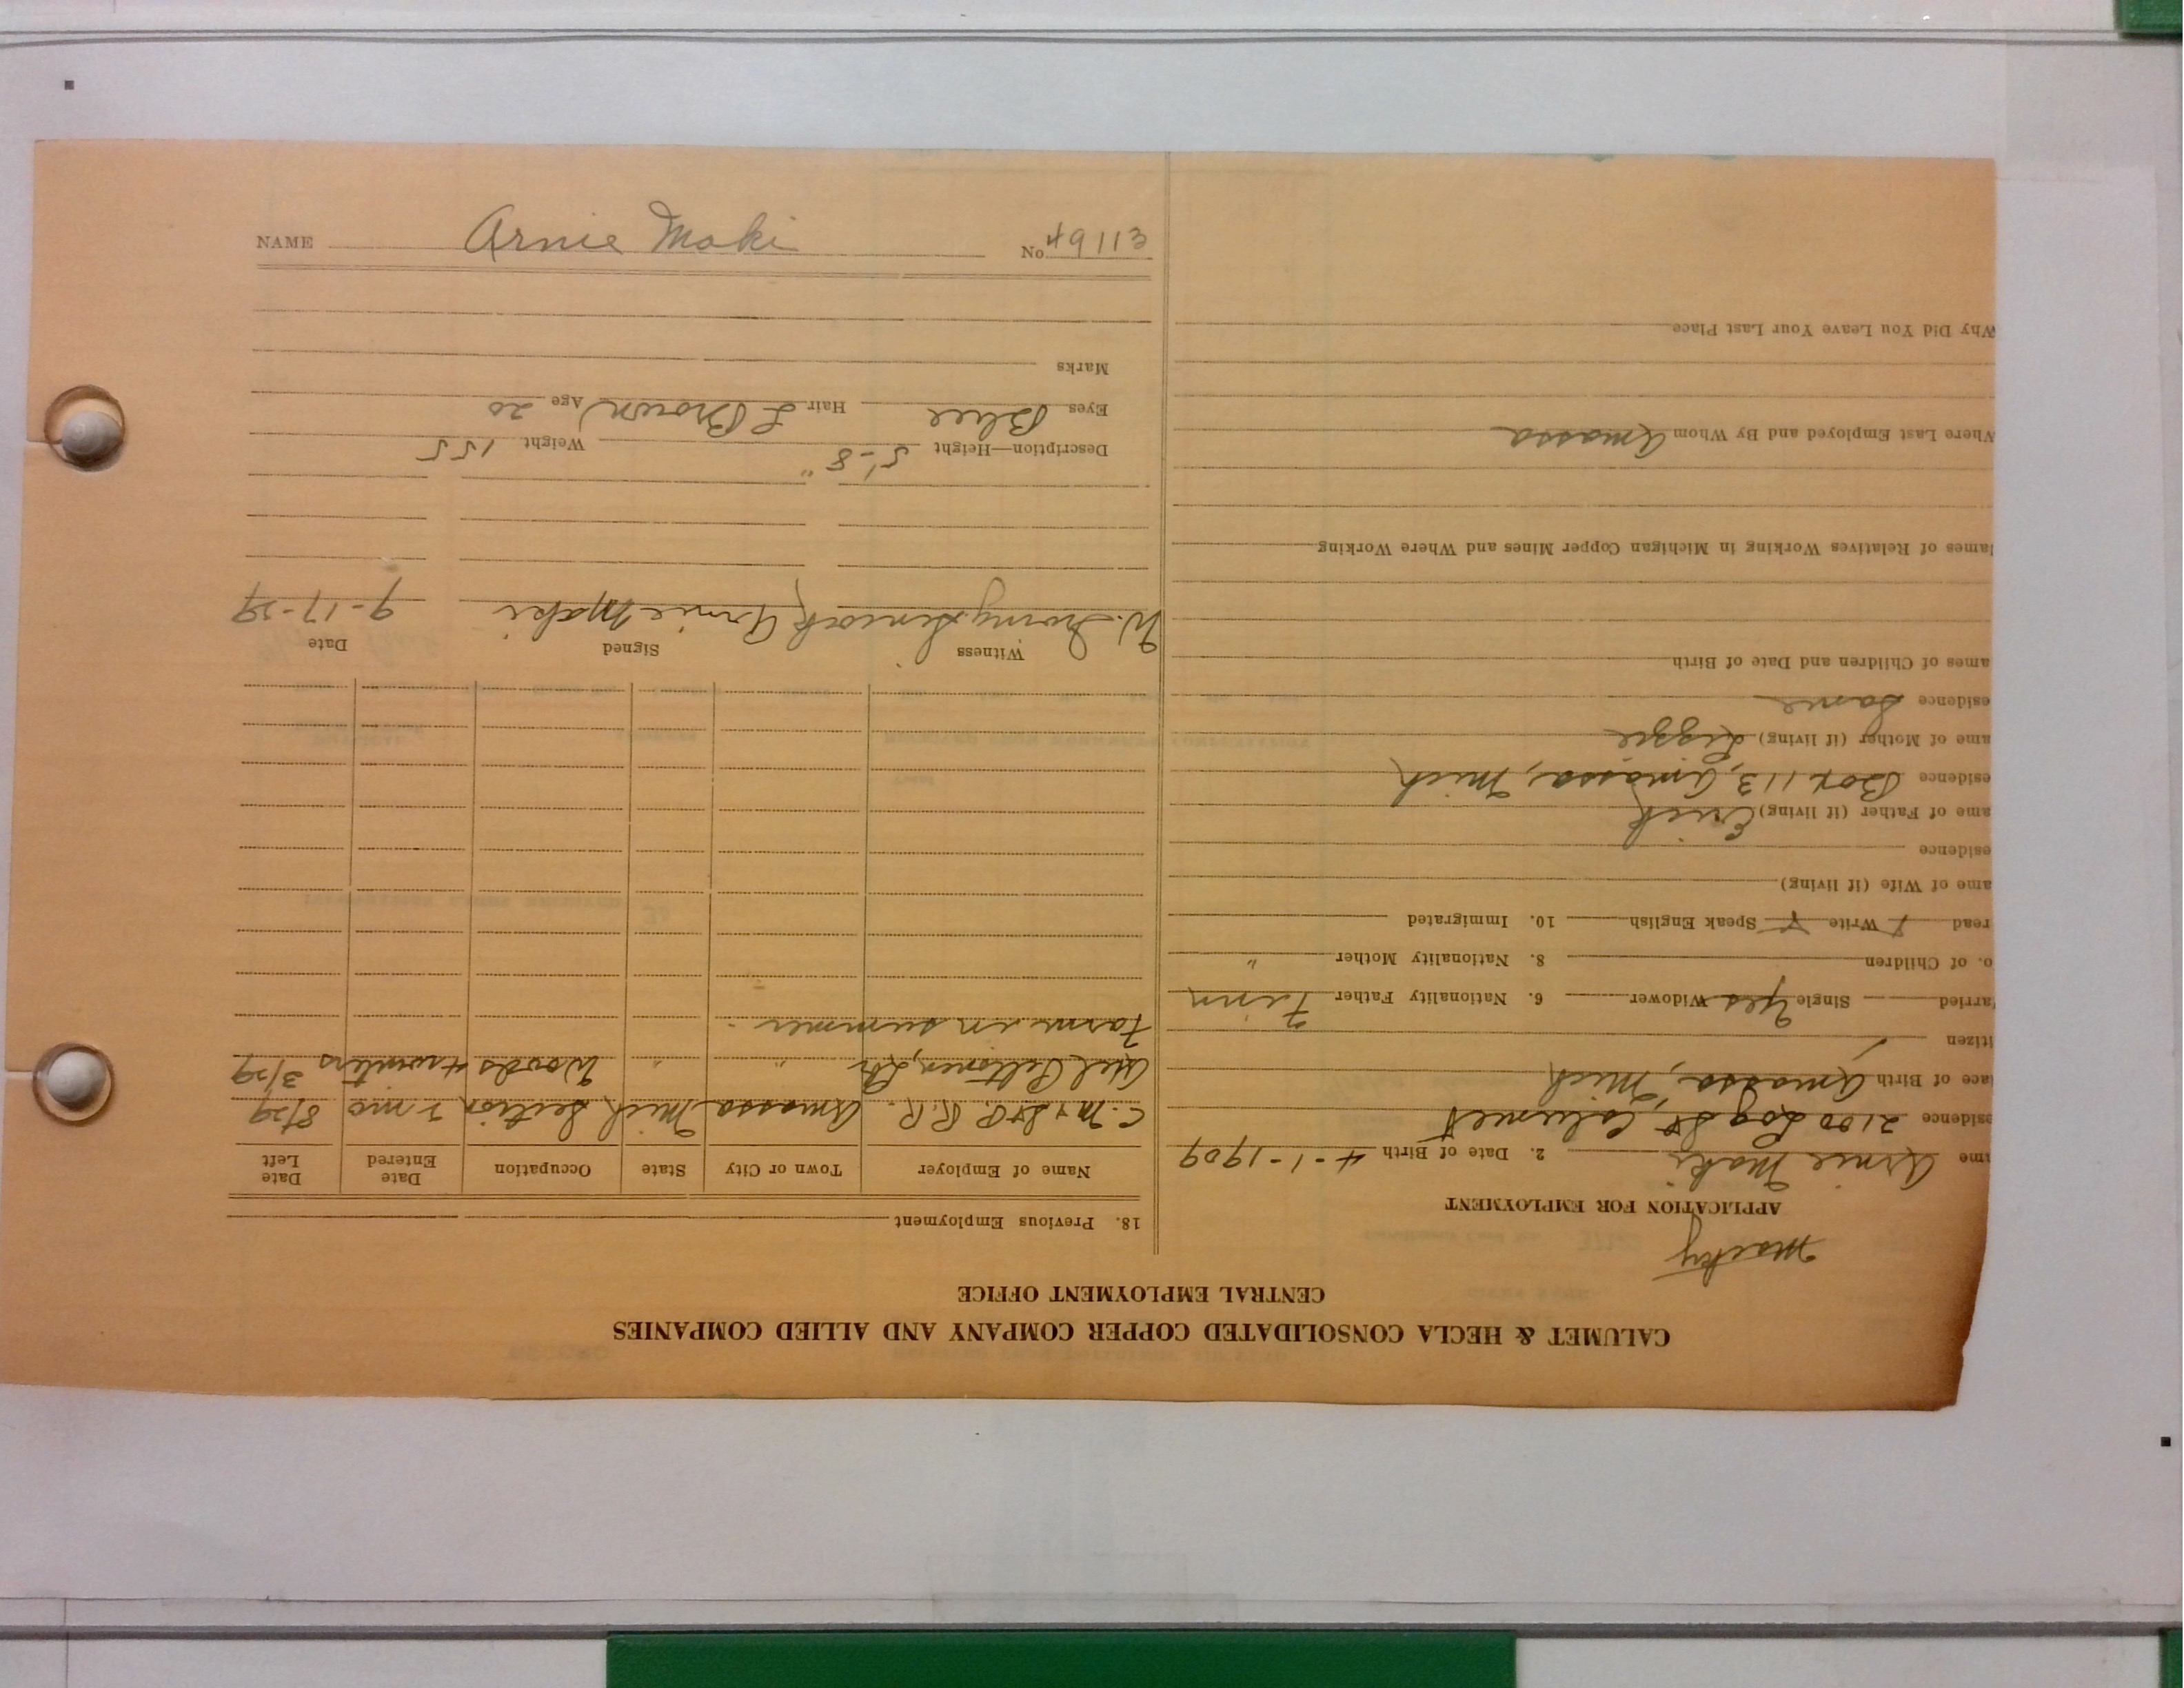 CALUMET & HECLA CONSOLIDATED COPPER COMPANY AND ALLIED COMPANIES
CENTRAL EMPLOYMENT OFFICE
Macky
APPLICATION FOR EMPLOYMENT
ame Arnie Maki 2. Date of Birth 4-1-1909
esidence 2100 Log St Calumet
lace of Birth Amassa, Mich
itizen
arried Single Yes Widower 6. Nationality Father Finn
o. of Children 8. Nationality Mother "
read Write Speak English 10. Immigrated
ame of Wife (if living)
esidence
ame of Father (if living) Erick
esidence Box 113, Amassa, Mich
ame of Mother (if living) Lizzie
esidence Same
ames of Children and Date of Birth
ames of Relatives Working in Michigan Copper Mines and Where Working
Where Last Employed and By Whom Amassa
Why Did You Leave Your Last Place
18. Previous Employment
Name of Employer Town or City State Occupation Date Entered Date Left
C. M & St P. R.R. Amassa Mich Section 5 mo 8/29
" " Woods 4 winters 3/29
Farm in summer
Witness Signed Date
W. Arnie Maki 9-17-29
Description—Height 5'-8" Weight 155
Eyes Blue Hair L Brown Age 20
Marks
NAME Arnie Maki No. 49113